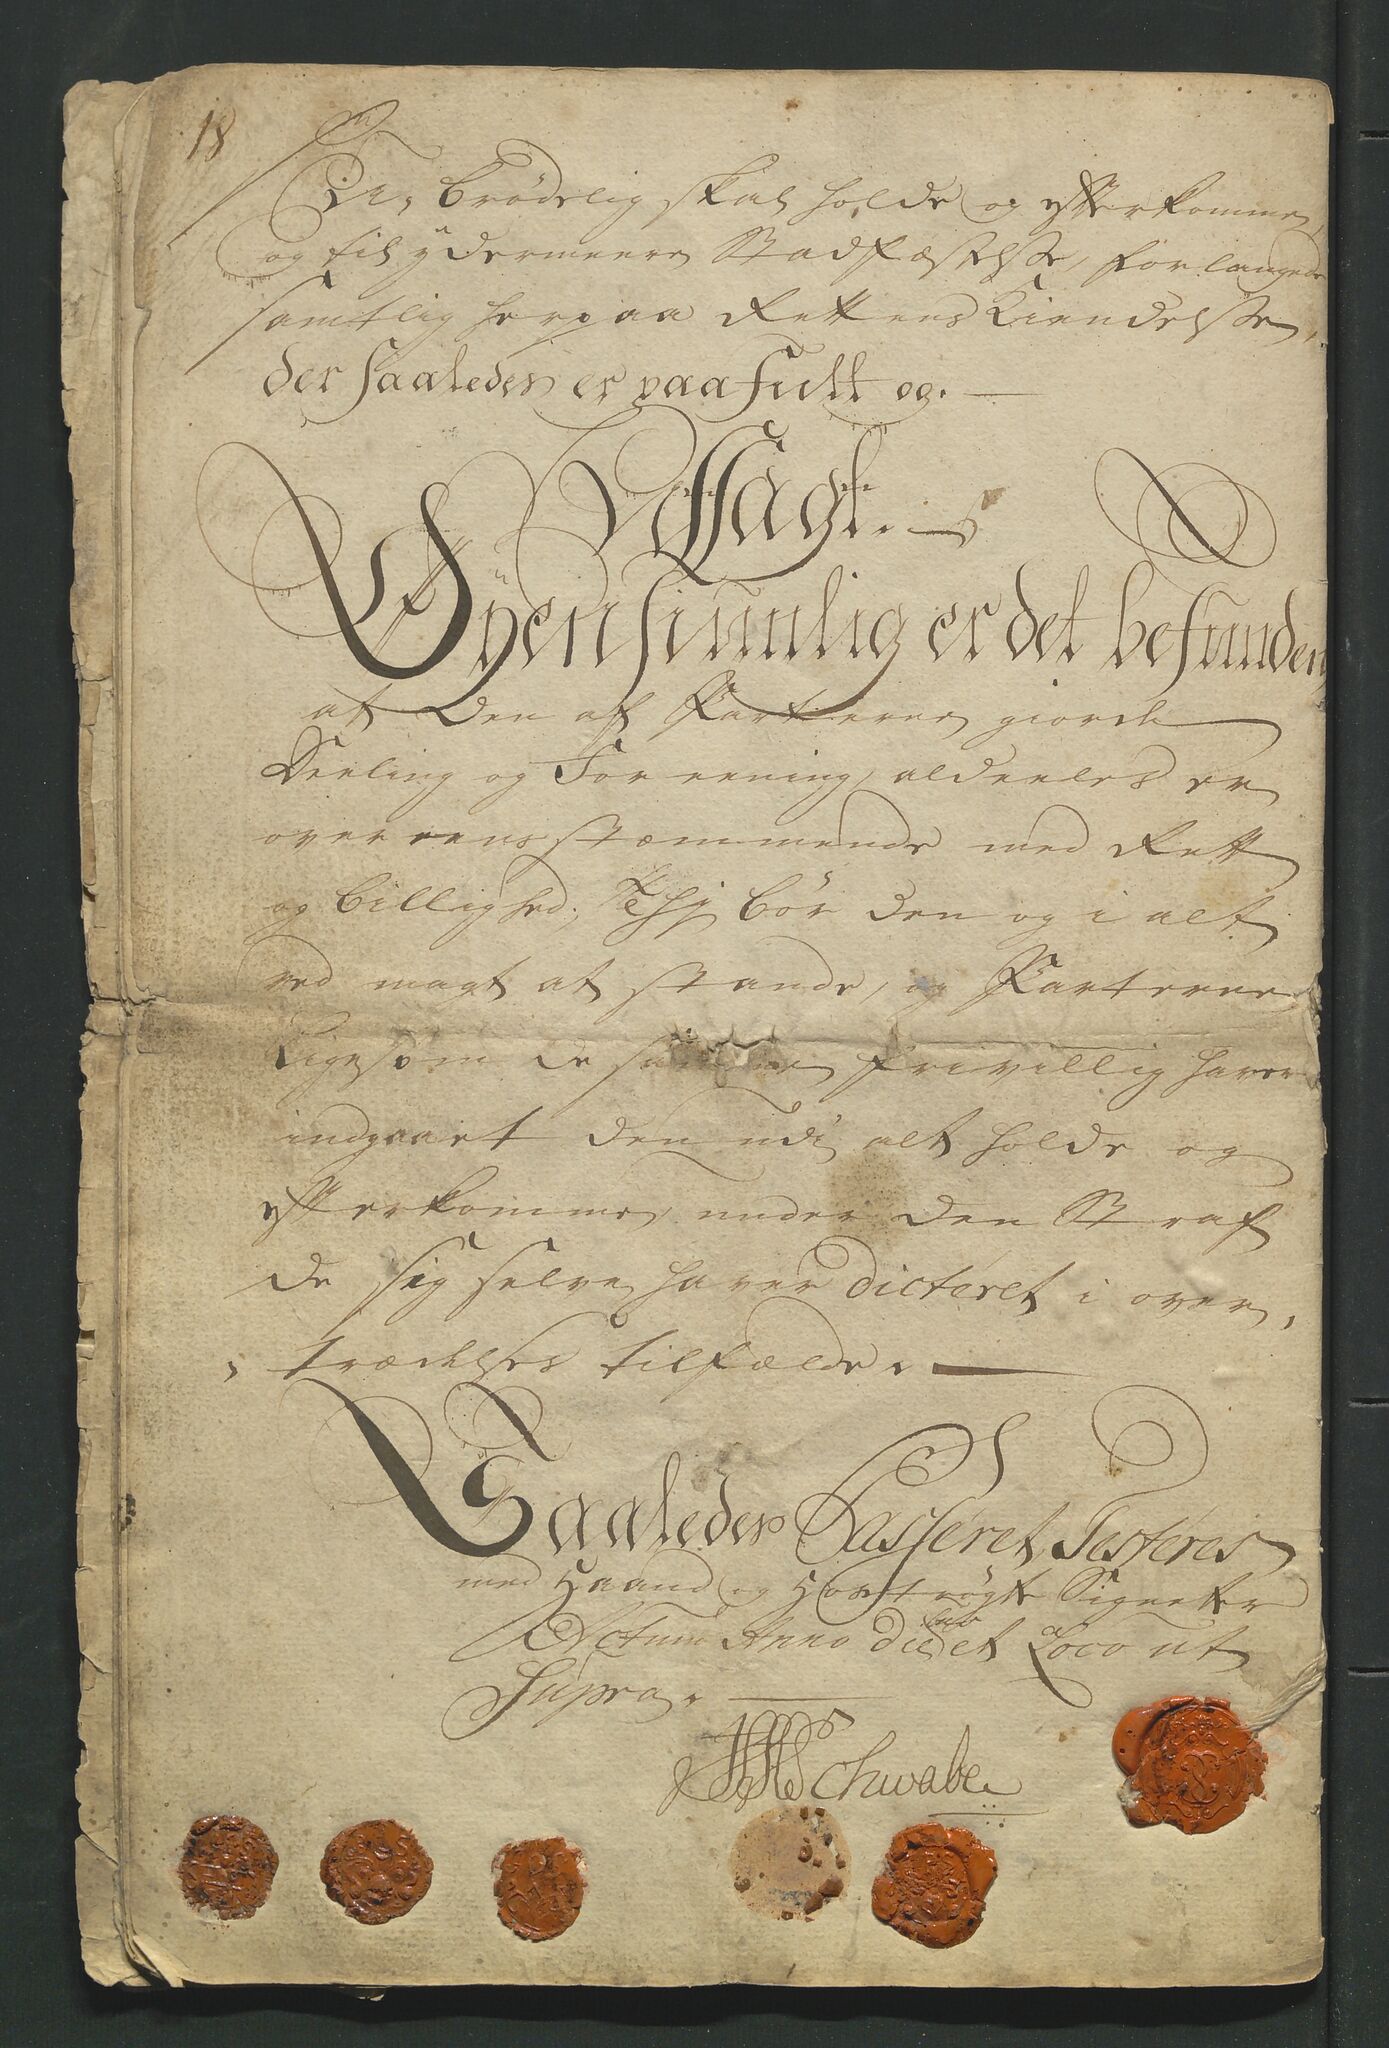 18
U, brødelig skal holde og efterkomme,
og til ydermeere Stadfæstelse, forlangede
samtlig herpaa Rettens Kiendelse,
der saaledes er paafult og.
Afsagt.
Øyensiunlig er det befunden
at den af Parterne giorde
Deeling og Foreening, aldeeles er
overeensstæmmende med Rett
og billighed; Thj bør den og i alt
ved magt at stande, og Parterne
Ligesom de samme frivillig haver
indgaaet den udi alt holde og
efterkomme, under den Straf
de sig selve haver dicteret i over,
, trædelses tilfælde.
Saaledes Passeret, Testeres
med Haand og Hoströgte Signetter
Actum Anno die et Loco ut
Supra.
Schwabe